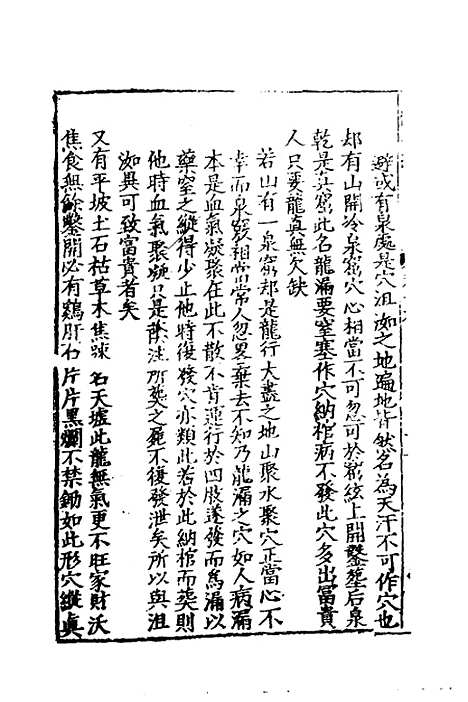 避或有泉處是穴沮洳之地遍地皆然名為天汗不可作穴也
却有山開冷泉窟穴心相當不可忽可於窟絃上開鑿塟后泉
乾是真窟此名龍漏要窒塞作穴納棺病不發此穴多出富貴
人只要龍真無欠缺
若山有一泉窟却是龍行大盡之地山聚水聚穴正當心不
幸而泉發相當常人忽畧棄去不知乃龍漏之穴如人病漏
本是血氣凝聚在此不散不肯運行於四肢遂發而為漏以
藥窒之縱得少止他時後發穴亦類此若於此納棺而葬則
他時血氣聚凝只是蔭注所葬之屍不復發泄矣所以與沮
洳異可致富貴者矣
又有平坡土石枯草木焦竦名天墟此龍無氣更不旺家財沃
焦食無餘鑿開必有鷄肝石片片黑爛不禁鋤如此形穴縱真